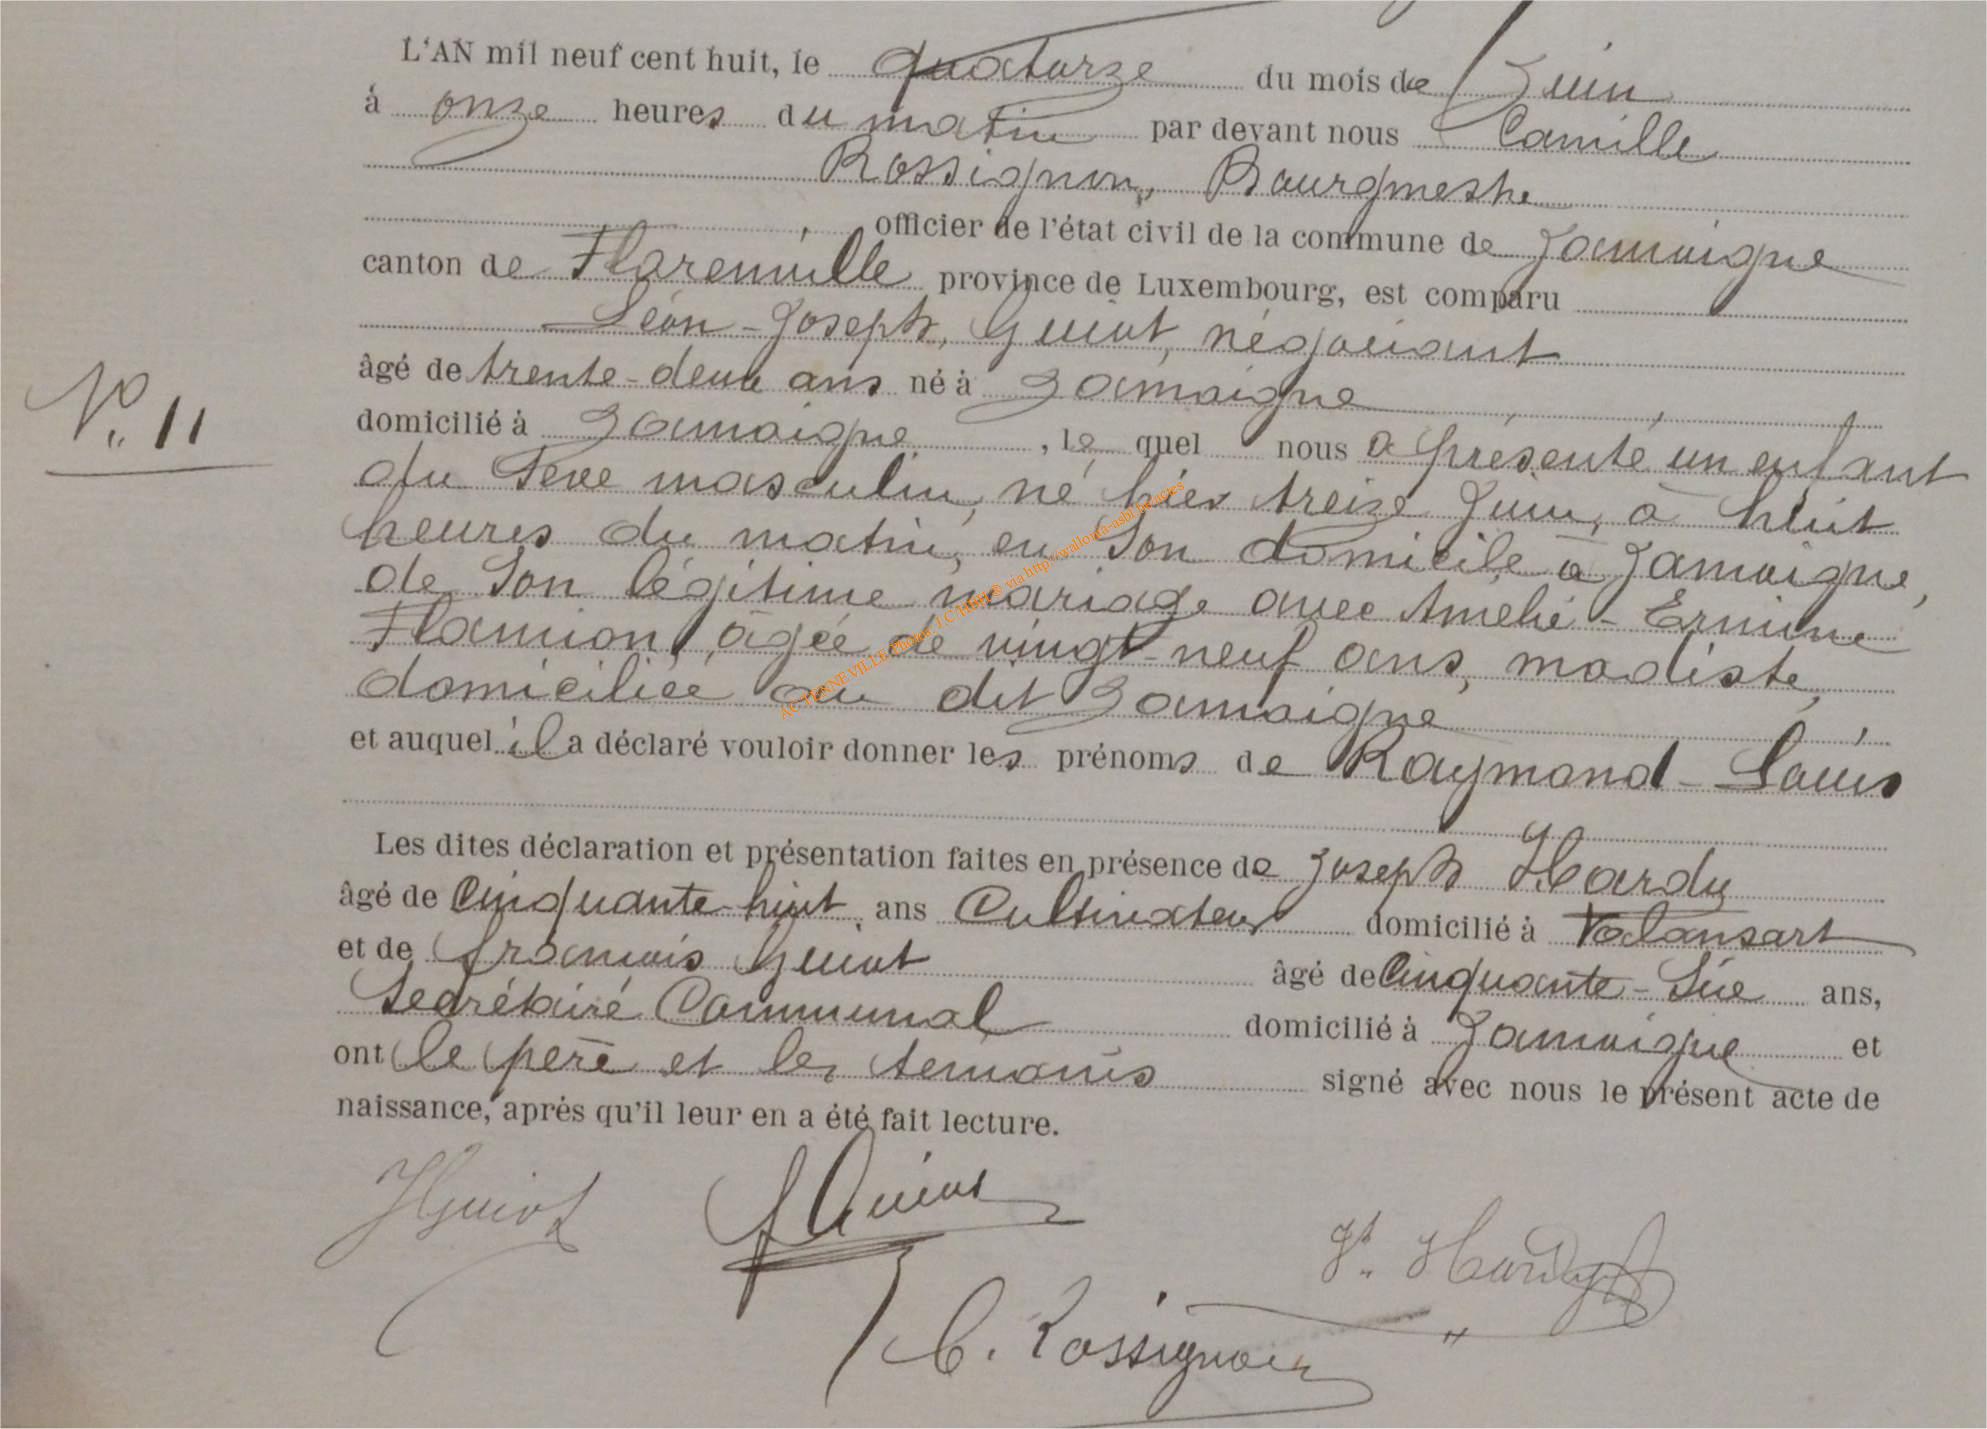 L'AN mil neuf cent huit, le quatorze du mois de Juin
à onze heures du matin par devant nous Camille
Rossignon, Bourgmestre
, officier de l'état civil de la commune de Jamoigne
canton de Florenville province de Luxembourg, est comparu
Léon-Joseph, Guiot, négociant
âgé de trente-deux ans né à Jamoigne
N° 11
domicilié à Jamoigne, le quel nous a présenté un enfant
du sexe masculin, né hier treize Juin, à huit
heures du matin, en son domicile à Jamoigne,
de son légitime mariage avec Amélie-Ermine
Flamion, âgée de vingt-neuf ans, modiste,
domiciliée au dit Jamoigne
et auquel il a déclaré vouloir donner les prénoms de Raymond-Louis
Les dites déclaration et présentation faites en présence de Joseph Hardy
âgé de cinquante-huit ans Cultivateur domicilié à Valansart
et de François Guiot âgé de cinquante-six ans,
Secrétaire Communal domicilié à Jamoigne et
ont le père et les témoins signé avec nous le présent acte de
naissance, après qu'il leur en a été fait lecture.
Guiot
f Guiot
Jh. Hardy
C. Rossignon
via http://wallonia-asbl.be/actes